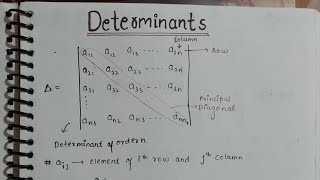 Determinants
Column
a11 a12 a13 ..... a1n → Row
a21 a22 a23 ..... a2n
Δ = a31 a32 a33 ..... a3n
an1 an2 an3 ..... ann
Principal
Diagonal
Determinant of order n
# aij → element of ith row and jth column